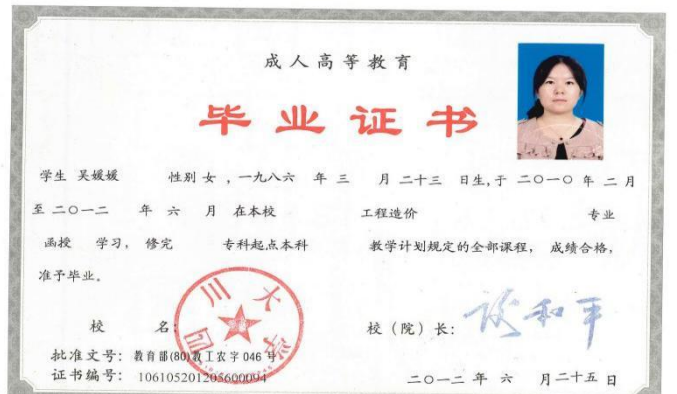 成人高等教育
毕业证书
学生 吴媛媛 性别 女 ，一九八六 年 三 月 二十三 日生,于 二〇一〇 年 二 月
至 二〇一二 年 六 月 在本校 工程造价 专业
函授 学习， 修完 专科起点本科 教学计划规定的全部课程， 成绩合格，
准予毕业。
四川大学
校 名：
校（院）长： 谢和平
批准文号： 教育部(80)教工农字 046 号
证书编号： 106105201205600094
二〇一二 年 六 月二十五 日